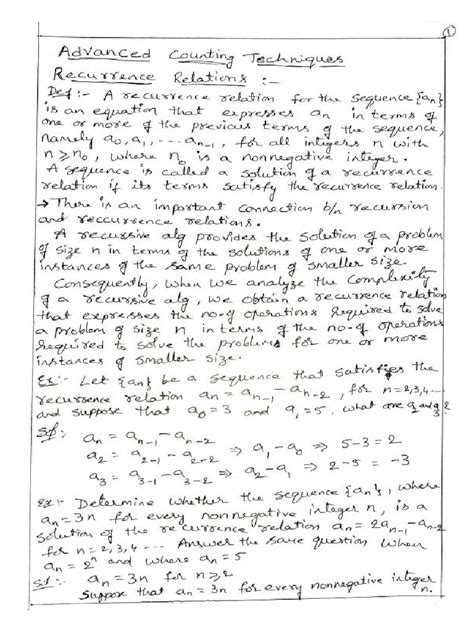 ①
Advanced Counting Techniques
Recurrence Relations :-
Def :- A recurrence relation for the sequence {an}
is an equation that expresses an in terms of
one or more of the previous terms of the sequence,
namely a0, a1, ... an-1, for all integers n with
n ≥ n0, where n0 is a nonnegative integer.
A sequence is called a solution of a recurrence
relation if its terms satisfy the recurrence relation.
→ There is an important connection b/n recursion
and reccurrence relations.
A recursive alg provides the solution of a problem
of size n in terms of the solutions of one or more
instances of the same problem of smaller size.
Consequently, when we analyze the complexity
of a recursive alg, we obtain a recurrence relation
that expresses the no-of operations required to solve
a problem of size n in terms of the no-of operations
required to solve the problems for one or more
instances of smaller size.
Ex:- Let {an} be a sequence that satisfies the
recurrence relation an = an-1 - an-2, for n=2,3,4...
and suppose that a0=3 and a1=5, what are a2 and a3?
Sol: an = an-1 - an-2
a2 = a2-1 - a2-2 ⇒ a1-a0 ⇒ 5-3=2
a3 = a3-1 - a3-2 ⇒ a2-a1 ⇒ 2-5=-3
Ex:- Determine whether the sequence {an}, where
an=3n for every nonnegative integer n, is a
solution of the recurrence relation an = 2an-1 - an-2
for n=2,3,4... Answer the same question when
an = 2^n and where an=5
Sol: an = 3n for n≥2
Suppose that an=3n for every nonnegative integer
n.